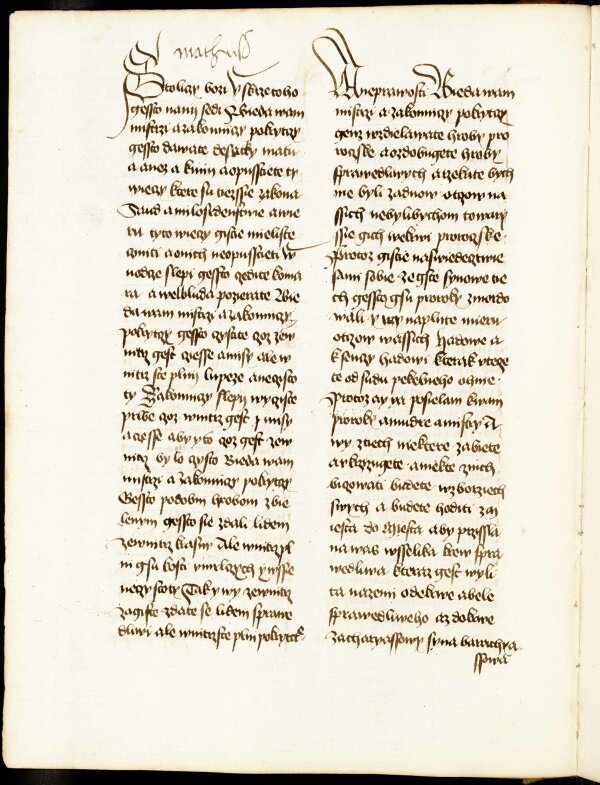 S mathuss
Stoliczy bozi y skrze toho
gessto nanij sedi Bieda wam
mistrzi a zakonniczy pokrytczy
gessto dawate desatky matu
a anez a kmin a opusstiete ty
wieczy ktere su tiezssie zakona
Saud a milosrdenstwie a wie
ru tyto wieczy gistie mieliste
cziniti a onich neopusstieti W
uodcze slepi gessto czedite koma
ra a welbluda pozierate Bie
da wam mistrzi a zakonniczy
pokrytczy gessto czistite coz zew
nitrz gest cziesse a misy ale w
nitrz ste plni lupeze a neczisto
ty Zakonniczy slepy wycziste
prwe coz wnitrz gest z misy
a czesse aby y to coz gest zew
nitrz bylo czisto Bieda wam
mistrzi a zakonniczy pokrytczy
Gessto podobni hrobom zbie
lenym gessto sie zdali lidem
zewnitrz krasni Ale wnitrz pl
ni gsu kosti umrlczych y wsse
neczystoty Tak y wy zewnitrz
zagiste zdate se lidem sprawe
dliwi ale wnitrz ste plni pokrytcz
A neprawosti Bieda wam
mistrzi a zakonniczy pokrytczy
genz wzdielawate hroby pro
roczske a ozdobugete hroby
sprawedliwych a rzekute bych
me byli za dnow otczow na
ssich nebyli bychom towarz
ssie gich wekrwi proroczske
Protoz gistie na swiedecztwie
sami sobie ze gste synowe tie
ch gessto gsu proroky zmordo
wali y wy naplnte mieru
otczow wassich Hadowe a
ksenczy hadowi kterak vtecze
te od sudu pekelneho ohnie
Protoz ay ia posielam kwam
proroky a mudre a mistry A
wy ztiech niektere zabiete
a vkrzizugete a niekte znich
biczowati budete w zborziech
swych a budete honiti z m
iesta do Miesta aby przissla
na was wsselika krew spra
wedliwa kteraz gest wyli
ta na zemi od krwe abele
sprawedliweho az do krwe
zacharyassowy syna barachya
ssowa